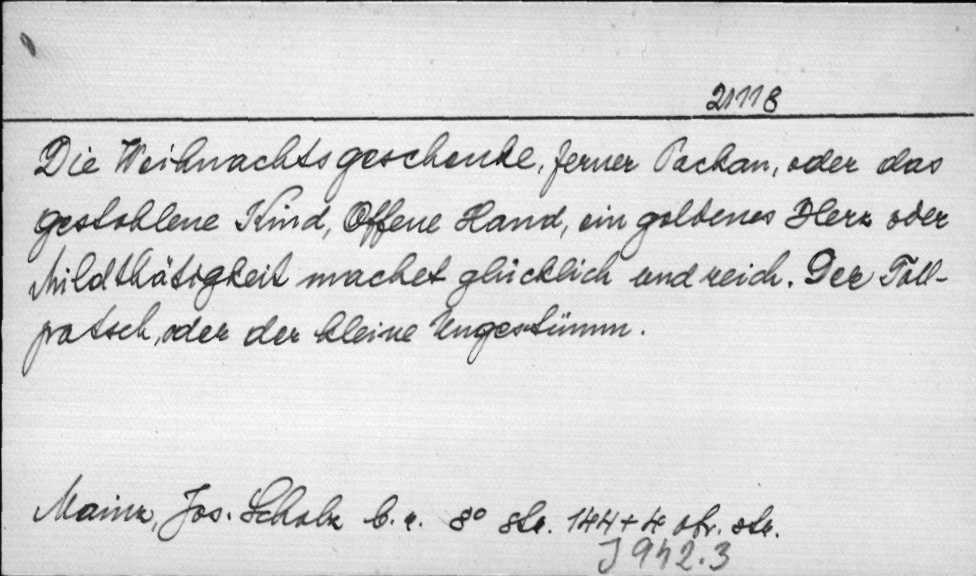 21118
Die Weihnachtsgeschenke, ferner Packan, oder das
gestohlene Kind, Offene Hand, ein goldenes Herz oder
Mildthätigkeit machet glücklich und reich. Der Toll-
patsch, oder der kleine Ungestümm.
Mainz, Jos. Scholz b. r. 8° str. 144+4 obr. str.
J 942.3